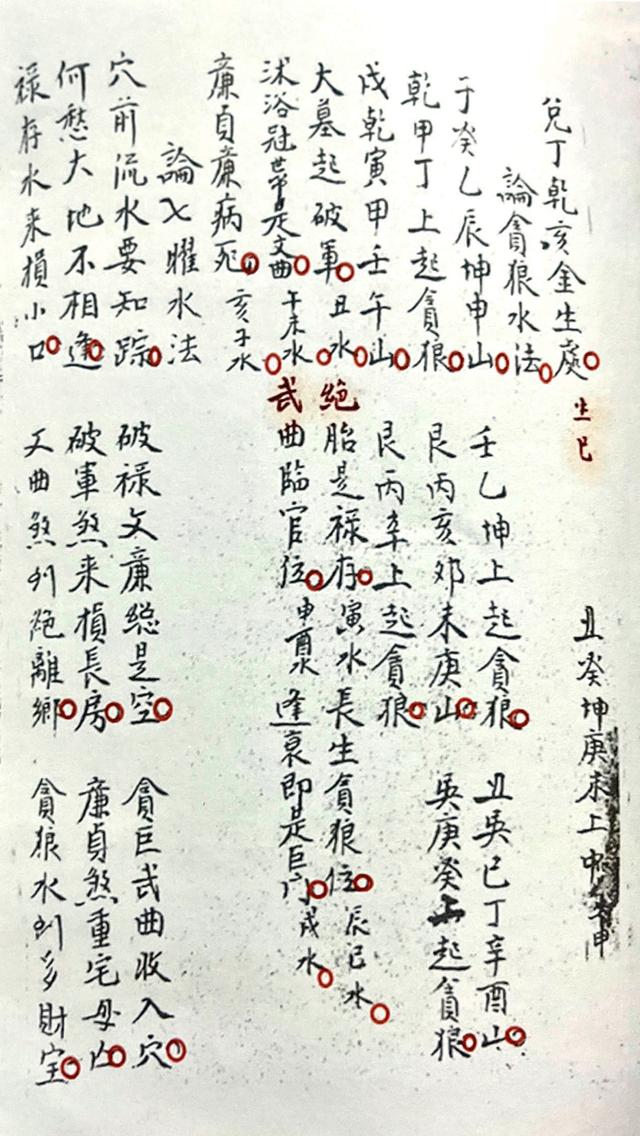 兌丁乾亥金生處 生巳 丑癸坤庚未上
論貪狼水法
子癸乙辰坤申山 壬乙坤上起貪狼 丑巽巳丁辛酉山
乾甲丁上起貪狼 艮丙亥夘未庚山 巽庚癸上起貪狼
戌乾寅甲壬午山 艮丙辛上起貪狼
大墓起破軍 丑水 絕胎是禄存 寅水 長生貪狼位 辰巳水
沐浴冠帶是文曲 午未水 武曲臨官位 申酉水 逢衰即是巨门 戌水
廉貞廉病死 亥子水
論七曜水法
穴前流水要知踪 破禄文廉總是空 貪巨武曲收入穴
何愁大地不相逢 破軍煞来損長房 廉貞煞重宅母凶
禄存水来損小口 文曲煞到絕離鄉 貪狼水到多財宝